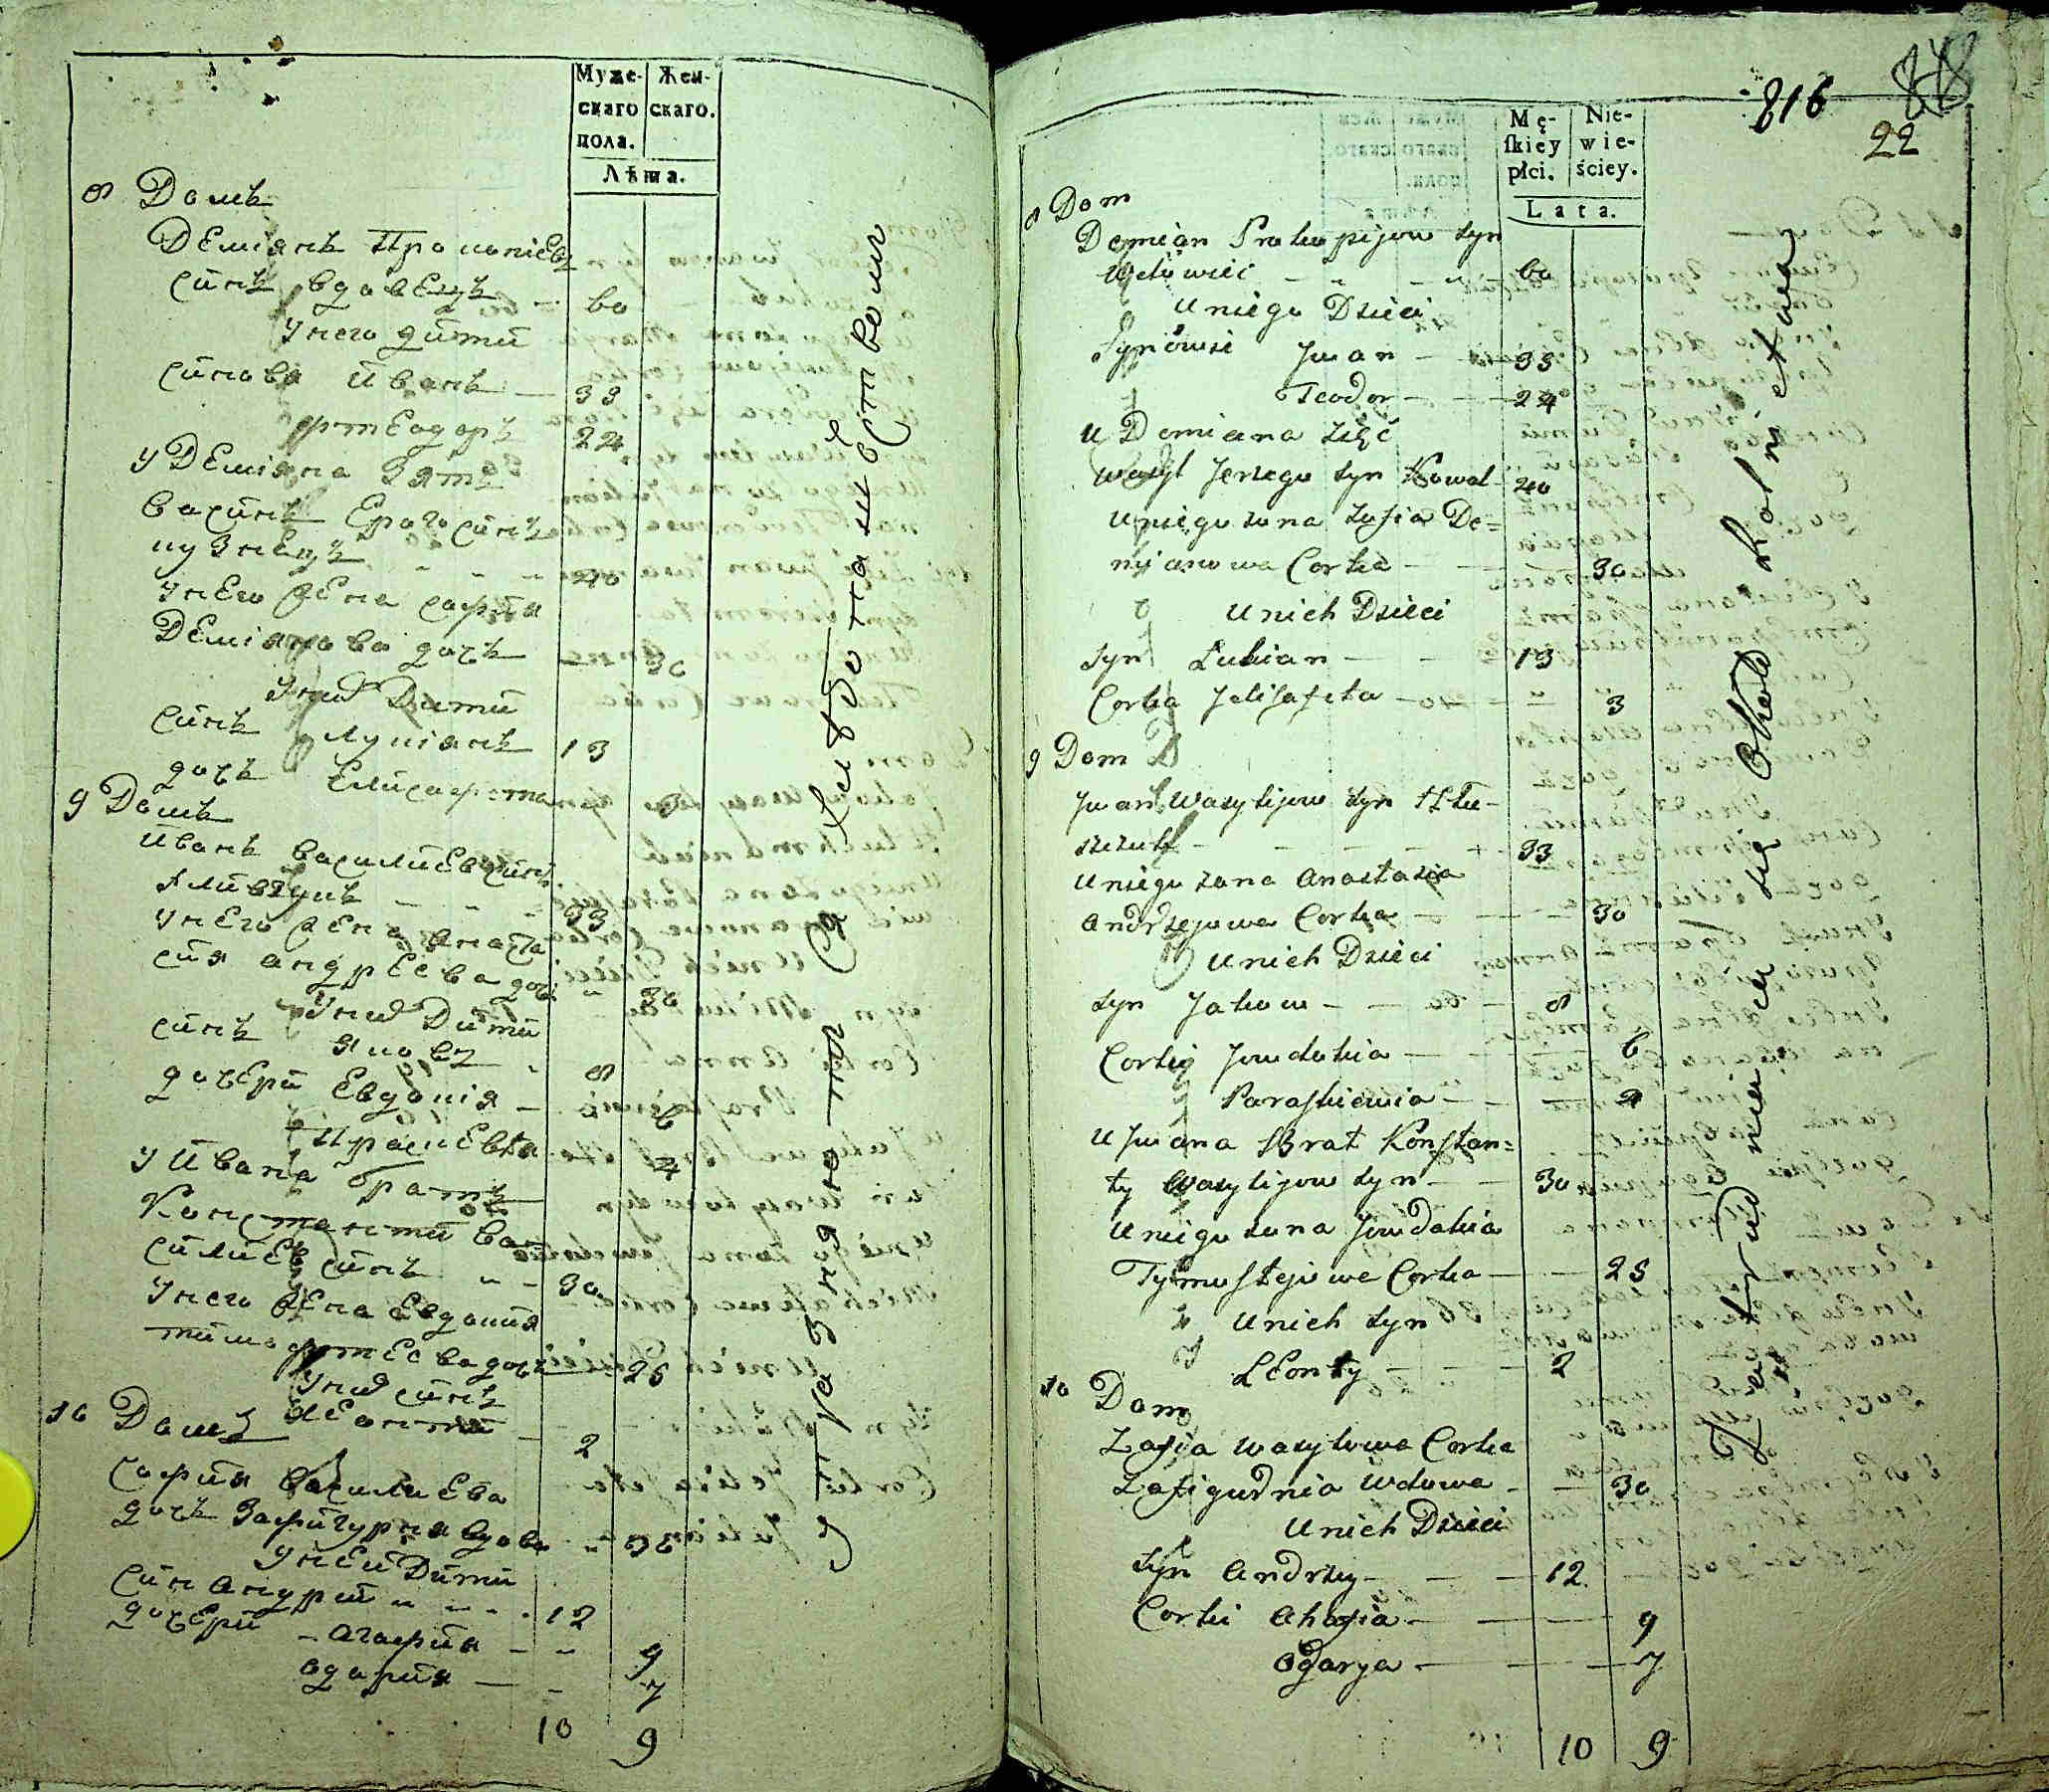 Муже-
скаго
пола.
Жен-
скаго.
Лѣта.
8 Домъ
Деміянъ Прокопіевъ
синъ вдовецъ — 60
У него дити
синове Иванъ — 33
Фтеодоръ 24
У Деміяна зять
Василь Ераго синъ
кузнецъ 40
У него жена Софія
Деміянова дочъ — 30
У них дити
синъ Лукіянъ 13
дочъ Елисафета 3
9 Домъ
Иванъ Василиев синъ
33
У него жена Анаста
сия Андреева доч 30
У них дити
синъ Яковъ 8
дочери Евдокія — 6
Праскевія 4
У Ивана братъ
Константи Ва
силиев синъ 30
У него жена Евдокия
Тимофтеева дочъ 25
У них синъ
Леонти — 2
10 Домъ
София Василиева
дочъ Зафигурня вдова 30
У ней дити
син Андрий 12
дочери Агафия 9
Одария — 7
10 9
Упражняютця в хлѣбопашествомъ
816
22
Mę-
ſkiey
płci.
Nie-
wie-
ściey.
Lata.
8 Dom
Demian Prokopijow syn
Wdowiec — 60
U niego Dzieci
Synowie Jwan — 33
Teodor — 24
U Demiana Zięć
Wasyl Jerzego syn Kowal 40
U niego zona Zofia De=
mjanowa Corka — 30
U nich Dzieci
Syn Lukian — 13
Corka Jelisafeta — 3
9 Dom
Jwan Wasylijow syn
33
U niego zona Anastazia
Andrzejowa Corka — 30
U nich Dzieci
Syn Jakow — 8
Corki Jewdokia — 6
Paraskiewia — 4
U Jwana Brat Konstan=
ty Wasylijow syn — 30
U niego zona Jewdokia
Tymufiejowa Corka — 25
U nich syn
Leonty — 2
10 Dom
Zofia Wasylowa Corka
Zafigurnia Wdowa — 30
U nich Dzieci
Syn Andrzey — 12
Corki Ahafia — 9
Odarya — 7
10 9
Zatrudniają się Około Rolnictwa